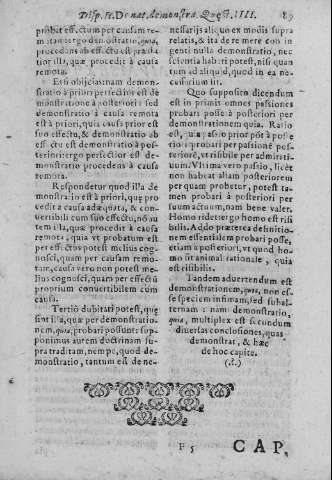 Disp. II. De nat. demonstra. Quęst. IIII. 89
probat effectum per causam re-
mota ergo demonstratio, quia,
procedens ab effectu est præsta
tior illa, quæ procedit à causa
remota.
Et si obijcias: nam demon-
stratio à priori perfectior est de
monstratione à posteriori: sed
demonstratio à causa remota
est à priori, quia causa prior est
suo effectu, & demonstratio ab
effectu est demonstratio à pos-
teriori: ergo perfectior est de-
monstratio procedens à causa
remota.
Respondetur quod illa de
monstratio est à priori, quę pro
cedit à causa adæquata, & con-
vertibili cum suo effectu, nõ au
tem illa, quæ procedit à causa
remota, quia vt probatum est
per effectus potest melius cog-
nosci, quam per causam remo-
tam, causa vero non potest me
lius cognosci, quàm per effectũ
proprium convertibilem cum
causa.
Tertiò dubitari potest, quę
sint illa, quæ per demonstratio-
nem, quia, probari possunt: sup-
ponimus autem doctrinam su-
pra traditam, nempe, quod de-
monstratio, tantum est de ne-
nessarijs alio, uo ex modis supra
relatis, & ita de re mere con in
genti nulla demonstratio, nec
scientia haberi potest, nisi quan
tum ad aliquid, quod in ea ne-
cessarium sit.
Quo supposito dicendum
est in primis omnes passiones
probari posse à posteriori per
demonstrationem quia. Ratio
est, quia passio prior põt à poste
riori probari per passionè pos-
teriorẽ, vt risibile per admirati-
uum. Vltima vero passio, licet
non habeat aliam posteriorem
per quam probetur, potest ta-
men probari à posteriori per
suum actuum, nam bene valet.
Homo ridet ergo homo est risi
bilis. Addo præterea definitio-
nem essentialem probari posse,
etiam à posteriori, vt quod ho-
mo sit animal rationale, quia
est risibilis.
Tandem advertendum est
demonstrationem, quia, non es-
se speciem infimam, sed subal-
ternam: nam demonstratio,
quia, multiplex est secundum
diversas conclusiones, quas
demonstrat, & hæc
de hoc capite.
(.?.)
F 5 CAP.